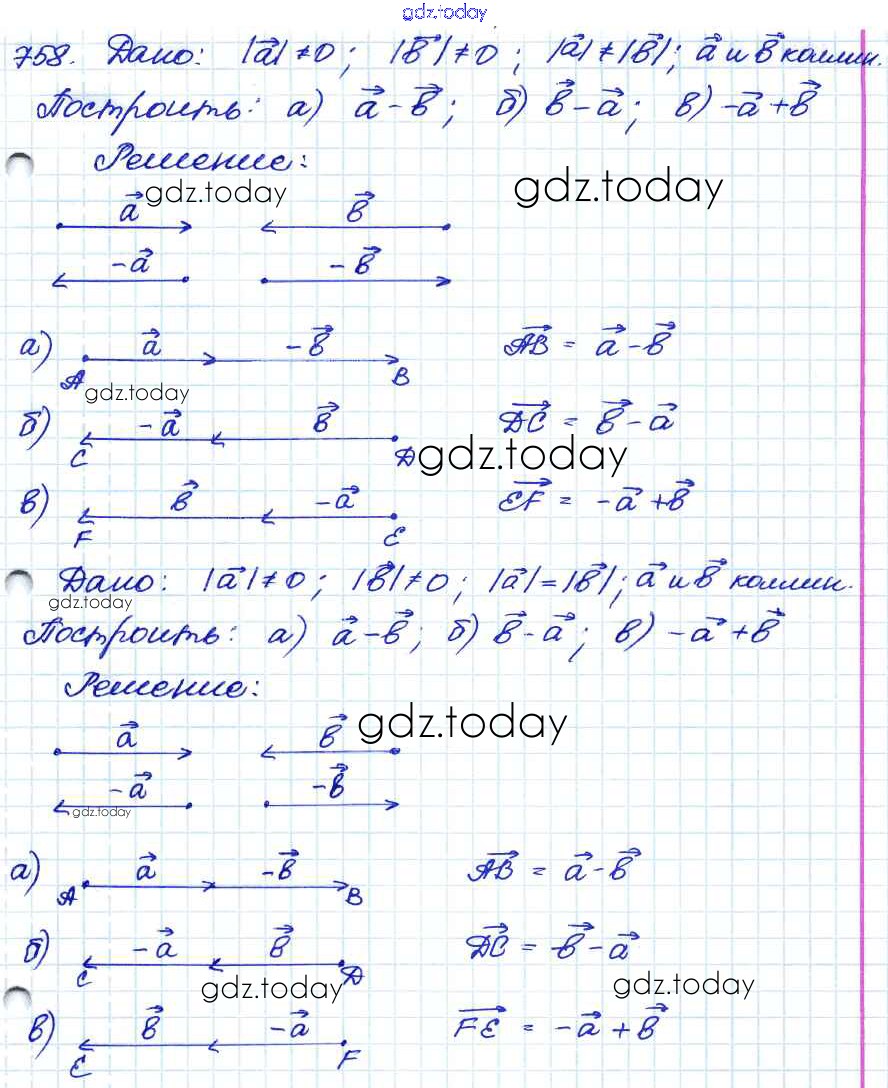 gdz.today
758. Дано: |a⃗| ≠ 0; |b⃗| ≠ 0; |a⃗| ≠ |b⃗|; a⃗ и b⃗ коллин.
Построить: а) a⃗ - b⃗; б) b⃗ - a⃗; в) -a⃗ + b⃗
Решение:
gdz.today gdz.today
a⃗ b⃗
-a⃗ -b⃗
а) a⃗ -b⃗ AB⃗ = a⃗ - b⃗
A B
gdz.today
б) -a⃗ b⃗ DC⃗ = b⃗ - a⃗
C D gdz.today
в) b⃗ -a⃗ EF⃗ = -a⃗ + b⃗
F E
Дано: |a⃗| ≠ 0; |b⃗| ≠ 0; |a⃗| = |b⃗|; a⃗ и b⃗ коллин.
gdz.today
Построить: а) a⃗ - b⃗; б) b⃗ - a⃗; в) -a⃗ + b⃗
Решение:
gdz.today
a⃗ b⃗
-a⃗ -b⃗
gdz.today
а) a⃗ -b⃗ AB⃗ = a⃗ - b⃗
A B
б) -a⃗ b⃗ DC⃗ = b⃗ - a⃗
C D
gdz.today gdz.today
в) b⃗ -a⃗ FE⃗ = -a⃗ + b⃗
E F